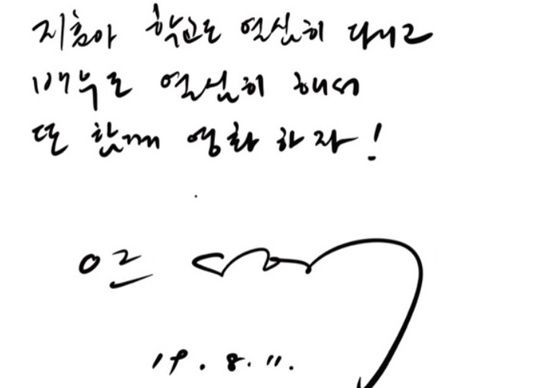 지훔아 학교도 열심히 다니고
배우도 열심히 해서
또 함께 영화 하자!
19. 8. 11.